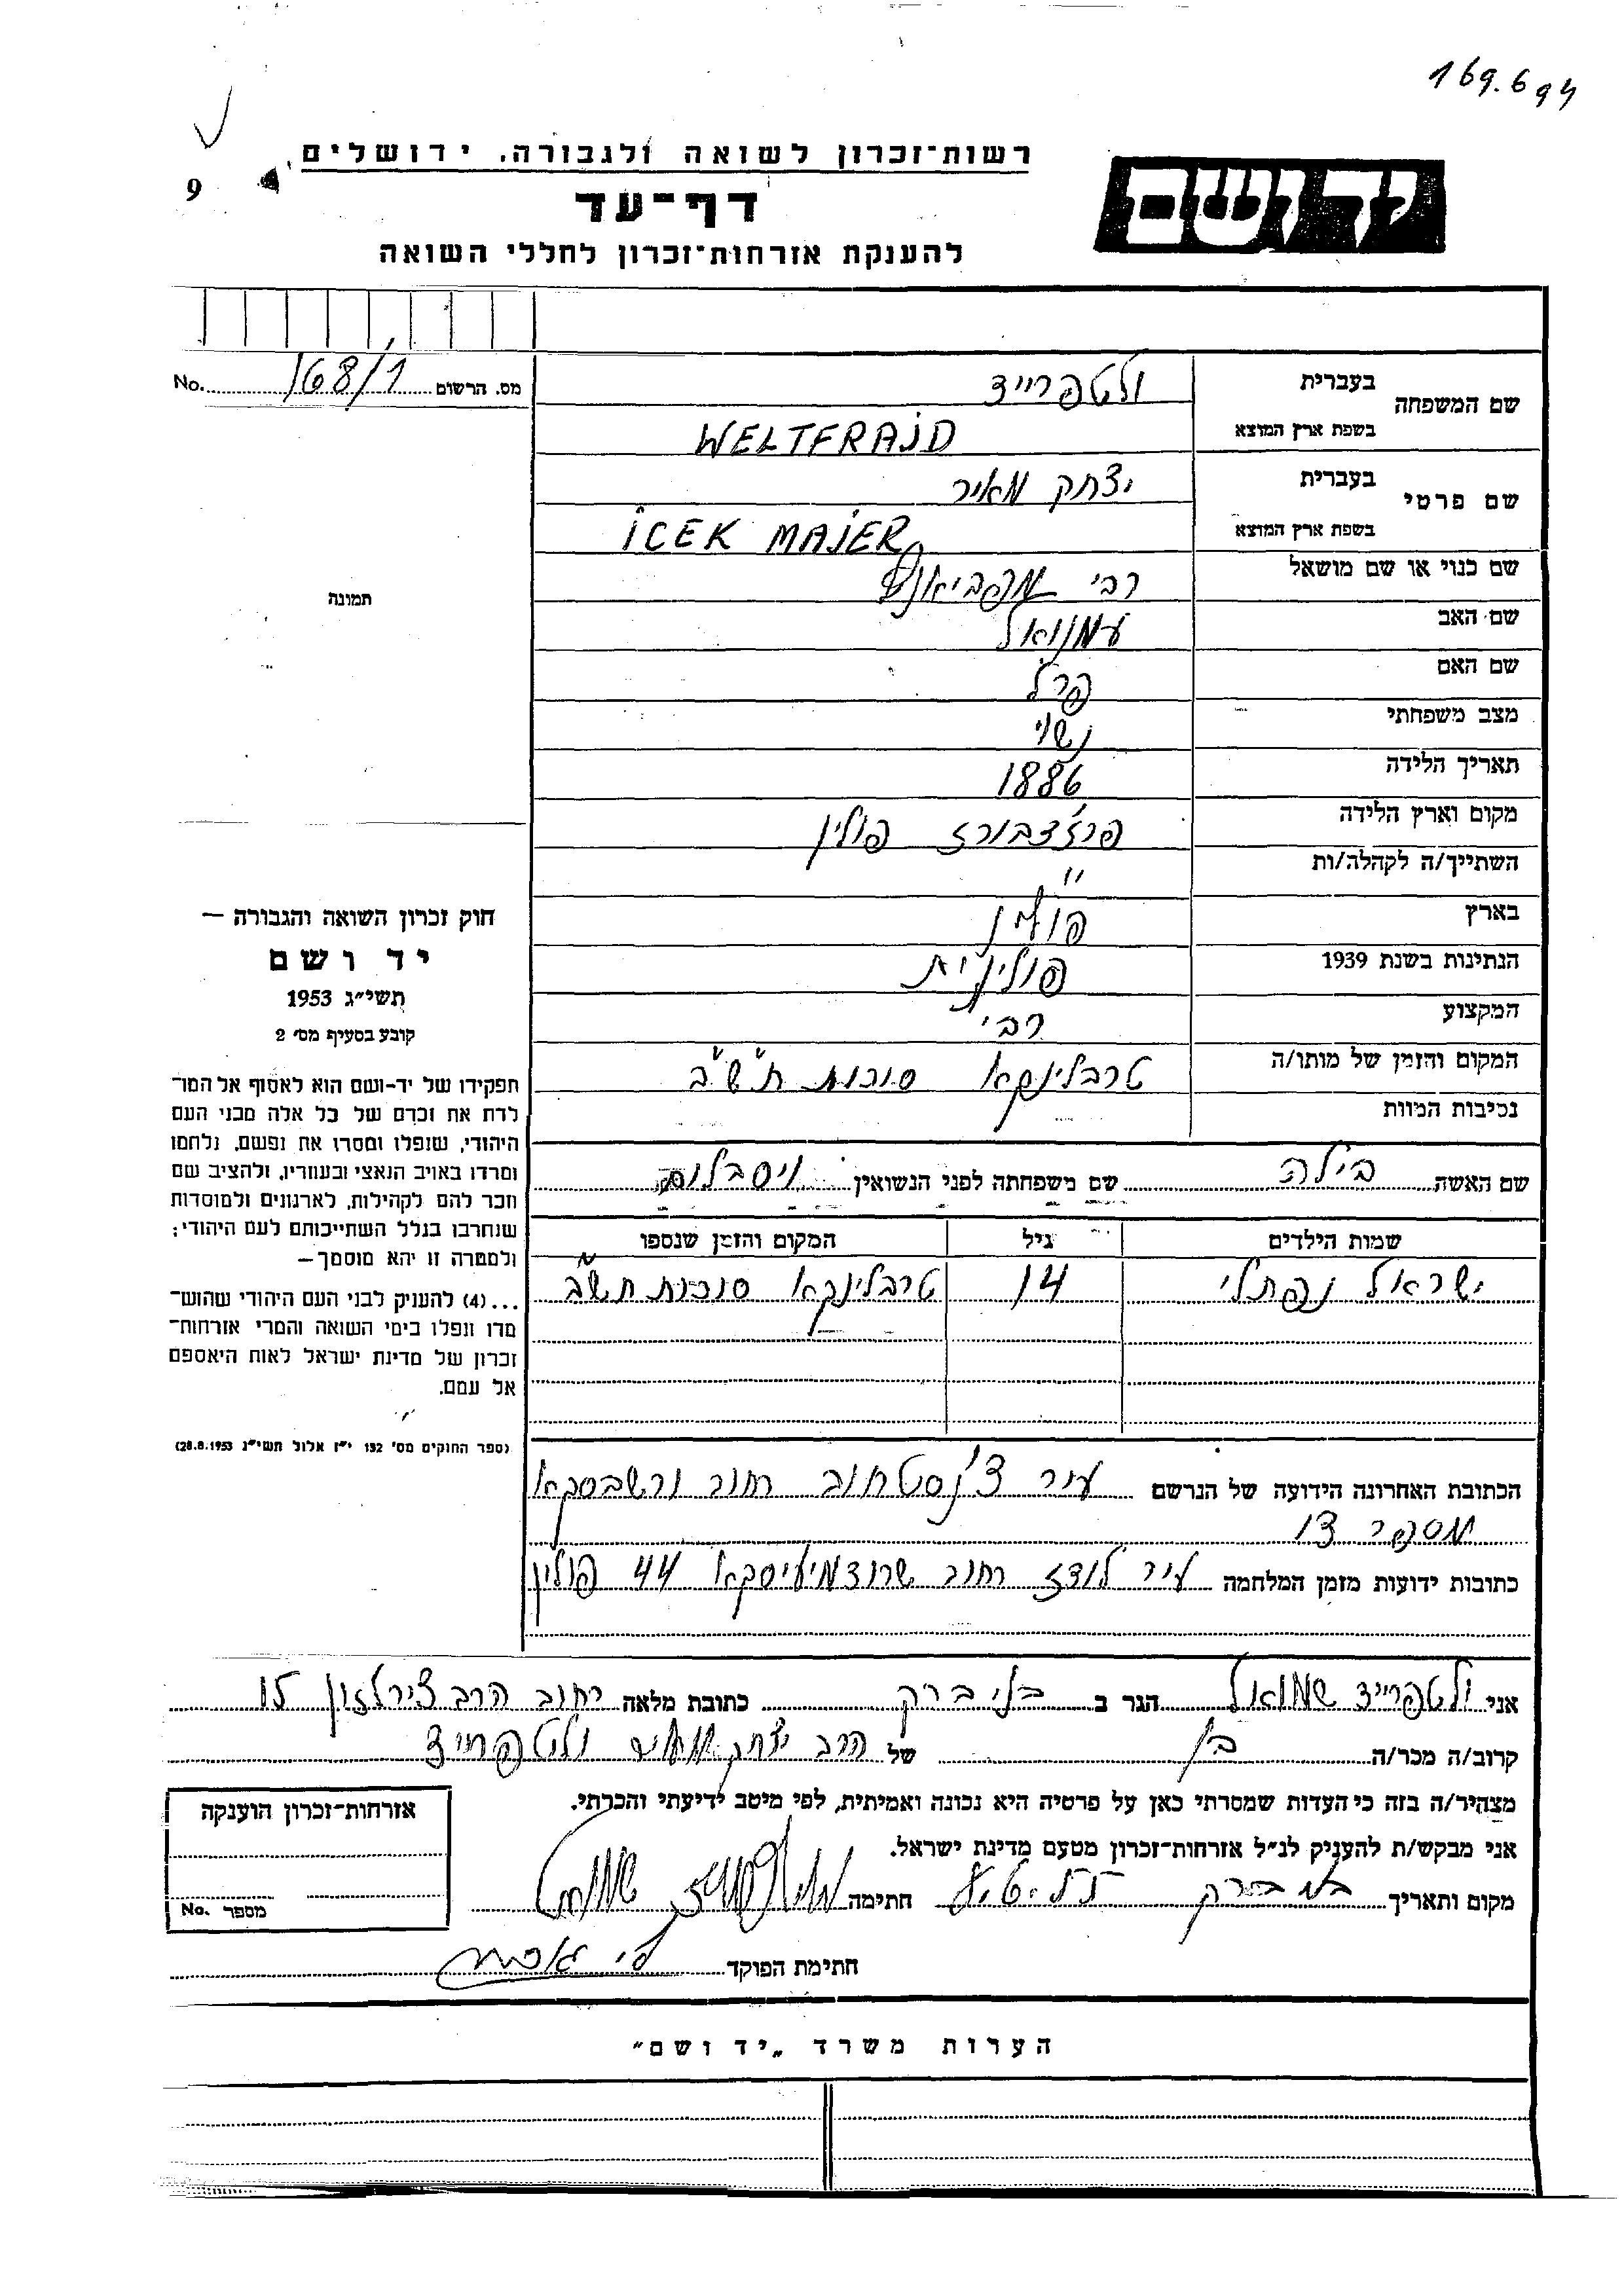 169.694
רשות־זכרון לשואה ולגבורה, ירושלים
יד ושם
דף־עד
9
להענקת אזרחות־זכרון לחללי השואה
מס. הרשום 168/1 No.
שם המשפחה
בעברית ולטפרייד
בשפת ארץ המוצא WELTFRAJD
שם פרטי
בעברית יצחק מאיר
בשפת ארץ המוצא ICEK MAJER
שם כנוי או שם מושאל רבי
שם האב עמנואל
שם האם פרל
מצב משפחתי נשוי
תאריך הלידה 1886
מקום וארץ הלידה פשדבורז פולין
השתייך/ה לקהלה/ות "
בארץ פולין
הנתינות בשנת 1939 פולינית
המקצוע רבי
המקום והזמן של מותו/ה טרבלינקא סוכות תש"ב
נסיבות המוות
תמונה
חוק זכרון השואה והגבורה —
יד ושם
תשי"ג 1953
קובע בסעיף מס' 2
תפקידו של יד-ושם הוא לאסוף אל המו־
לדת את זכרם של כל אלה מבני העם
היהודי, שנפלו ומסרו את נפשם, נלחמו
ומרדו באויב הנאצי ובעוזריו, ולהציב שם
וזכר להם לקהילות, לארגונים ולמוסדות
שנחרבו בגלל השתייכותם לעם היהודי;
ולמטרה זו יהא מוסמך —
...(4) להעניק לבני העם היהודי שהוש־
מדו ונפלו בימי השואה והמרי אזרחות־
זכרון של מדינת ישראל לאות היאספם
אל עמם.
(ספר החוקים מס' 132 י"ז אלול תשי"ג 28.8.1953)
שם האשה בילה שם משפחתה לפני הנשואין
שמות הילדים גיל המקום והזמן שנספו
ישראל נפתלי 14 טרבלינקא סוכות תש"ב
הכתובת האחרונה הידועה של הנרשם עיר צ'נסטחוב רחוב ורשבסקא
מספר 13
כתובות ידועות מזמן המלחמה עיר לודז רחוב שרודמיעיסקא 44 פולין
אני ולטפרייד שמואל הגר ב בני ברק כתובת מלאה רחוב הרב צירלזון 15
קרוב/ה מכר/ה בן של הרב יצחק מאיר ולטפרייד
מצהיר/ה בזה כי העדות שמסרתי כאן על פרטיה היא נכונה ואמיתית, לפי מיטב ידיעתי והכרתי.
אני מבקש/ת להעניק לנ"ל אזרחות־זכרון מטעם מדינת ישראל.
מקום ותאריך בני ברק חתימה ולטפרייד שמואל
חתימת הפוקד
אזרחות־זכרון הוענקה
מספר No.
הערות משרד „יד ושם"